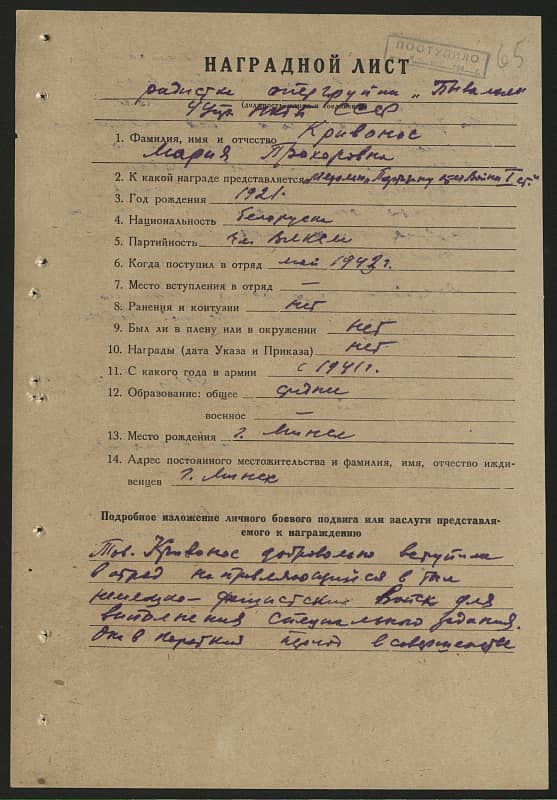 ПОСТУПИЛО
65
НАГРАДНОЙ ЛИСТ
радистка опергруппы „Бывалые"
4 упр. НКГБ СССР
1. Фамилия, имя и отчество Кривонос
Мария Прохоровна
2. К какой награде представляется „медалью Партизану Отеч Войны I ст."
3. Год рождения 1921 г.
4. Национальность белоруска
5. Партийность чл ВЛКСМ
6. Когда поступил в отряд май 1942 г.
7. Место вступления в отряд —
8. Ранения и контузии нет
9. Был ли в плену или в окружении нет
10. Награды (дата Указа и Приказа) нет
11. С какого года в армии с 1941 г.
12. Образование: общее средн
военное —
13. Место рождения г. Минск
14. Адрес постоянного местожительства и фамилия, имя, отчество ижди-
венцев г. Минск
Подробное изложение личного боевого подвига или заслуги представля-
емого к награждению
Тов. Кривонос добровольно вступила
в отряд направляющийся в тыл
немецко-фашистских войск для
выполнения специального задания.
Она в короткий период в совершенстве